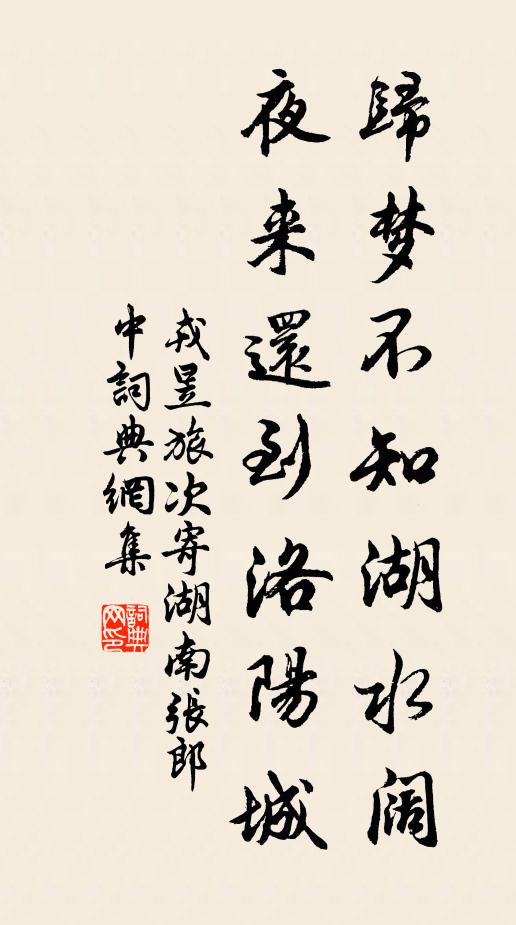 歸梦不知湖水阔
夜来還到洛陽城
戎昱旅次寄湖南張郎
中詞典網集
詞典
网印